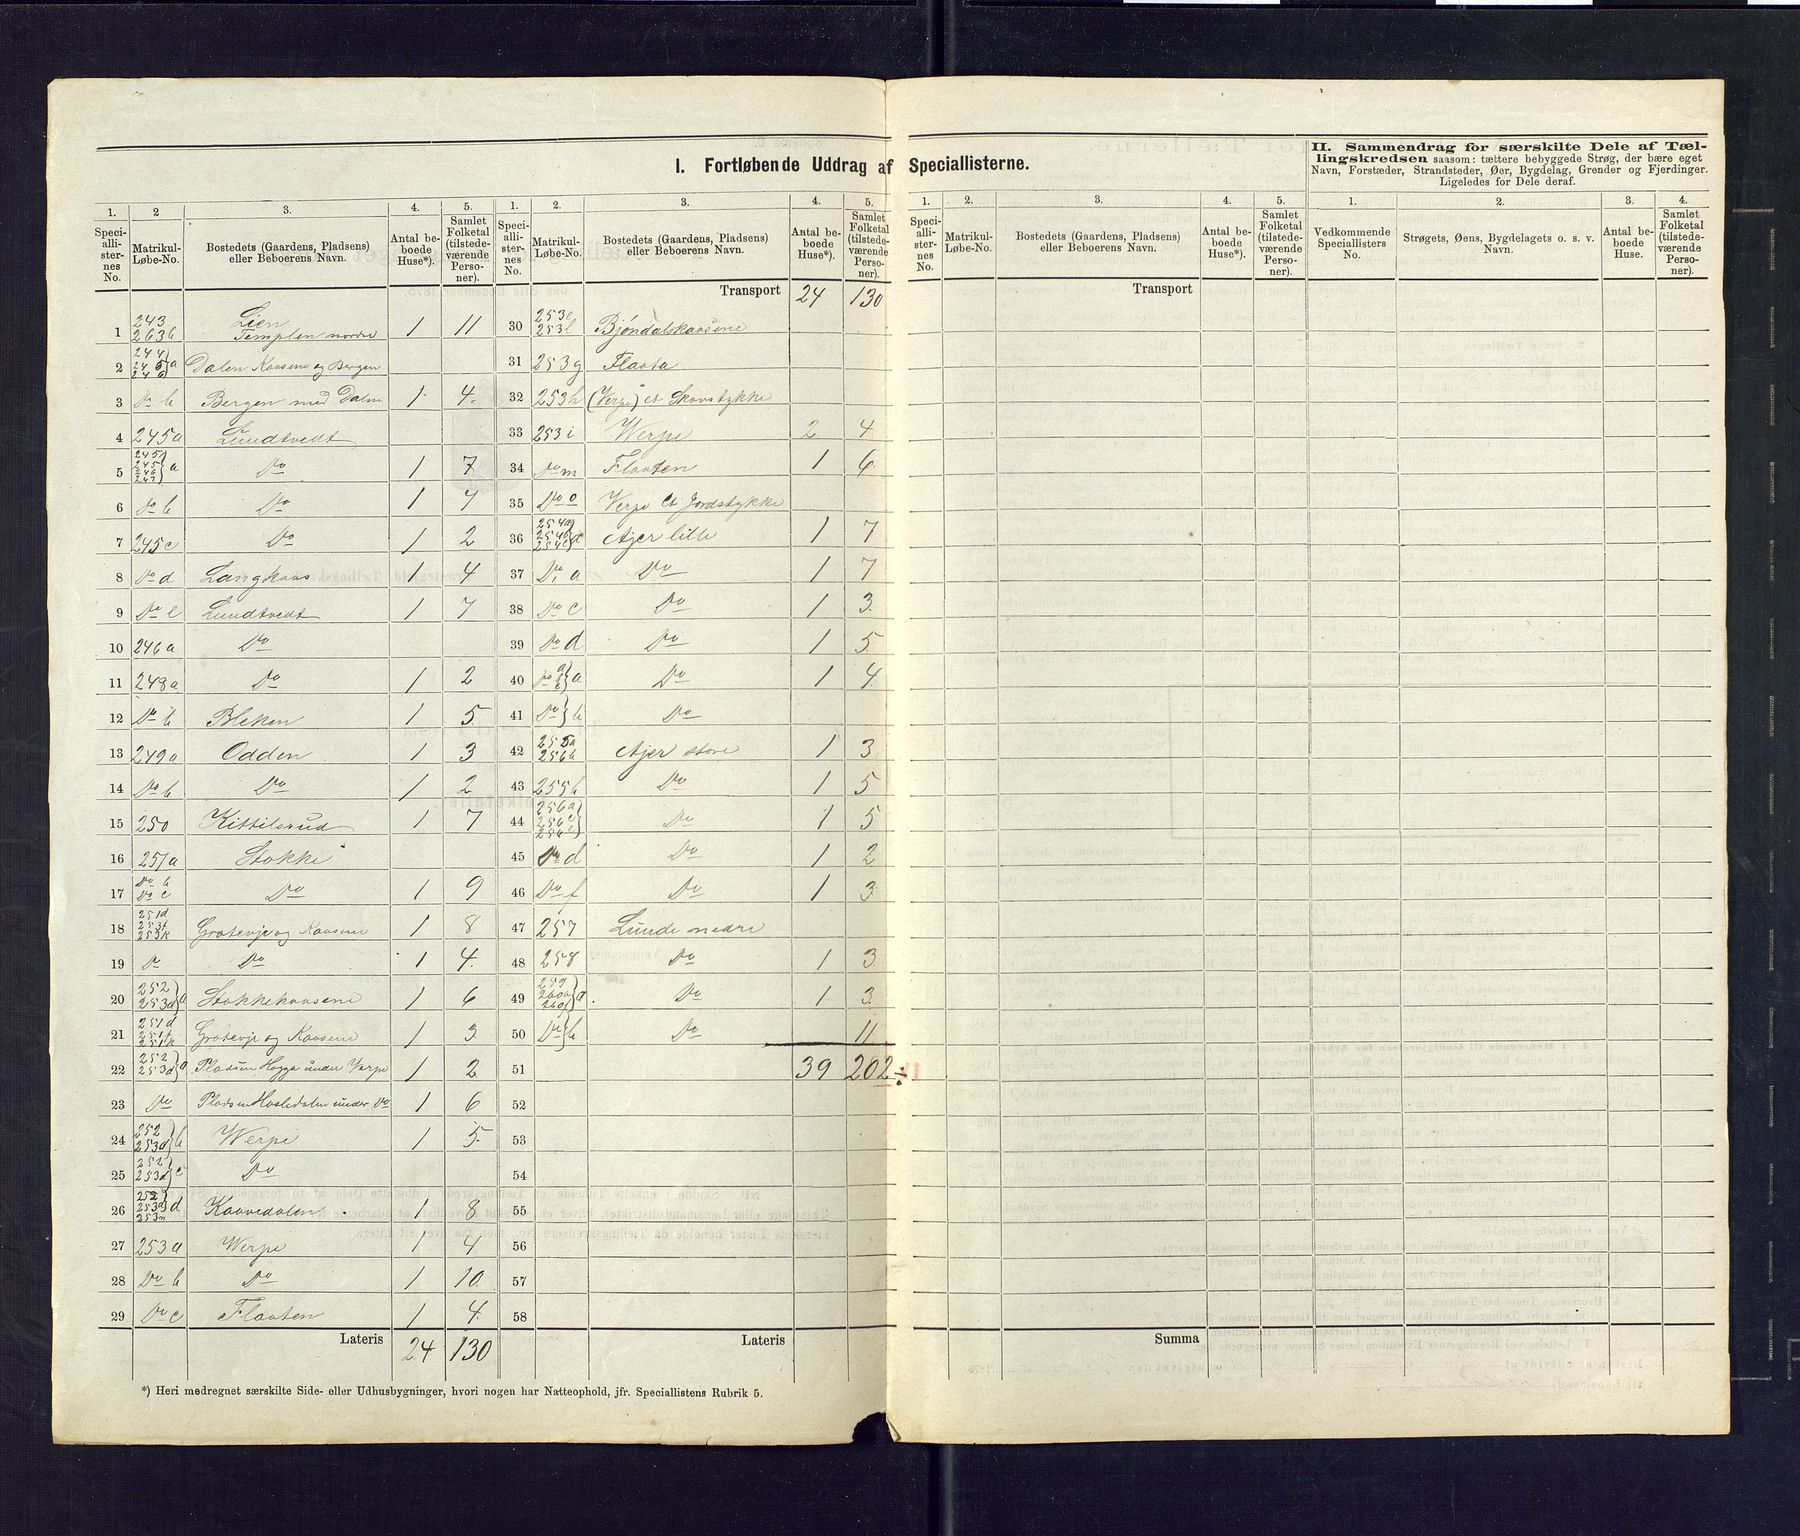 I. Fortløbende Uddrag af Speciallisterne.
II. Sammendrag for særskilte Dele af Tællingskredsen saasom: tættere bebyggede Strøg, der bære eget
Navn, Forstæder, Strandsteder, Øer, Bygdelag, Grender og Fjerdinger.
Ligeledes for Dele deraf.
1. 2 3. 4. 5.
Speciallisternes No. Matrikul-Løbe-No. Bostedets (Gaardens, Pladsens) eller Beboerens Navn. Antal beboede Huse*). Samlet Folketal (tilstedeværende Personer).
1 243 263b Lien Templen nordre 1 11
2 244 245 246 a Dalen Kaasene og Bergen
3 Do b Bergen med Dalen 1 4.
4 245a Lundtvedt
5 245 245 246 247 a Do 1 7
6 Do b Do 1 4
7 245c Do 1 2
8 Do d Langkaas 1 4
9 Do e Lundtvedt 1 7
10 246a Do
11 248a Do 1 2
12 Do b Bleken 1 5
13 249a Odden 1 3
14 Do b Do 1 2
15 250 Kittilsrud 1 7
16 251a Stokke
17 Do b Do c Do 1 9
18 251d 253f 253k Grotevje og Kaasene 1 8
19 Do Do 1 4.
20 252 253d a Stokkekaasene 1 6
21 251d 251f 251k Grotevje og Kaasene 1 3.
22 252 253d a Pladsen Hogga under Verpe 1 2
23 Do Pladsen Hasledalen under Do 1 6
24 252 253d b Werpe 1 5.
25 252 253d c Do
26 252 253d 253n d Kaavedalen 1 8
27 253a Werpe 1 4
28 Do b Do 1 10
29 Do c Flaaten 1 4.
Lateris 24 130
1. 2. 3. 4. 5.
Speciallisternes No. Matrikul-Løbe-No. Bostedets (Gaardens, Pladsens) eller Beboerens Navn. Antal beboede Huse*). Samlet Folketal (tilstedeværende Personer).
Transport 24 130
30 253e 253l Bjøndalskaasene
31 253g Flaata
32 253h (Verpe) et Skovstykke
33 253i Werpe 2 4
34 Do m Flaaten 1 6.
35 Do o Verpe et Jordstykke
36 254a 254b 254c d Ajer lille 1 7
37 Do a Do 1 7
38 Do c Do 1 3.
39 Do d Do 1 5
40 Do a Do 1 4.
41 Do b Do
42 255a 256b Ajer store 1 3.
43 255b Do 1 5
44 256a 256c 256e Do 1 5
45 Do d Do 1 2
46 Do f Do 1 3.
47 257 Lunde nedre
48 258 Do 1 3.
49 259 260a 260f a Do 1 3.
50 Do b Do 11.
51 39 202
52
53
54
55
56
57
58
Lateris
1. 2. 3. 4. 5.
Speciallisternes No. Matrikul-Løbe-No. Bostedets (Gaardens, Pladsens) eller Beboerens Navn. Antal beboede Huse*). Samlet Folketal (tilstedeværende Personer).
Transport
Summa
1. 2. 3. 4.
Vedkommende Speciallisters No. Strøgets, Øens, Bygdelagets o. s. v. Navn. Antal beboede Huse. Samlet Folketal (tilstedeværende Personer).
*) Heri medregnet særskilte Side- eller Udhusbygninger, hvori nogen har Natteophold, jfr. Speciallistens Rubrik 5.